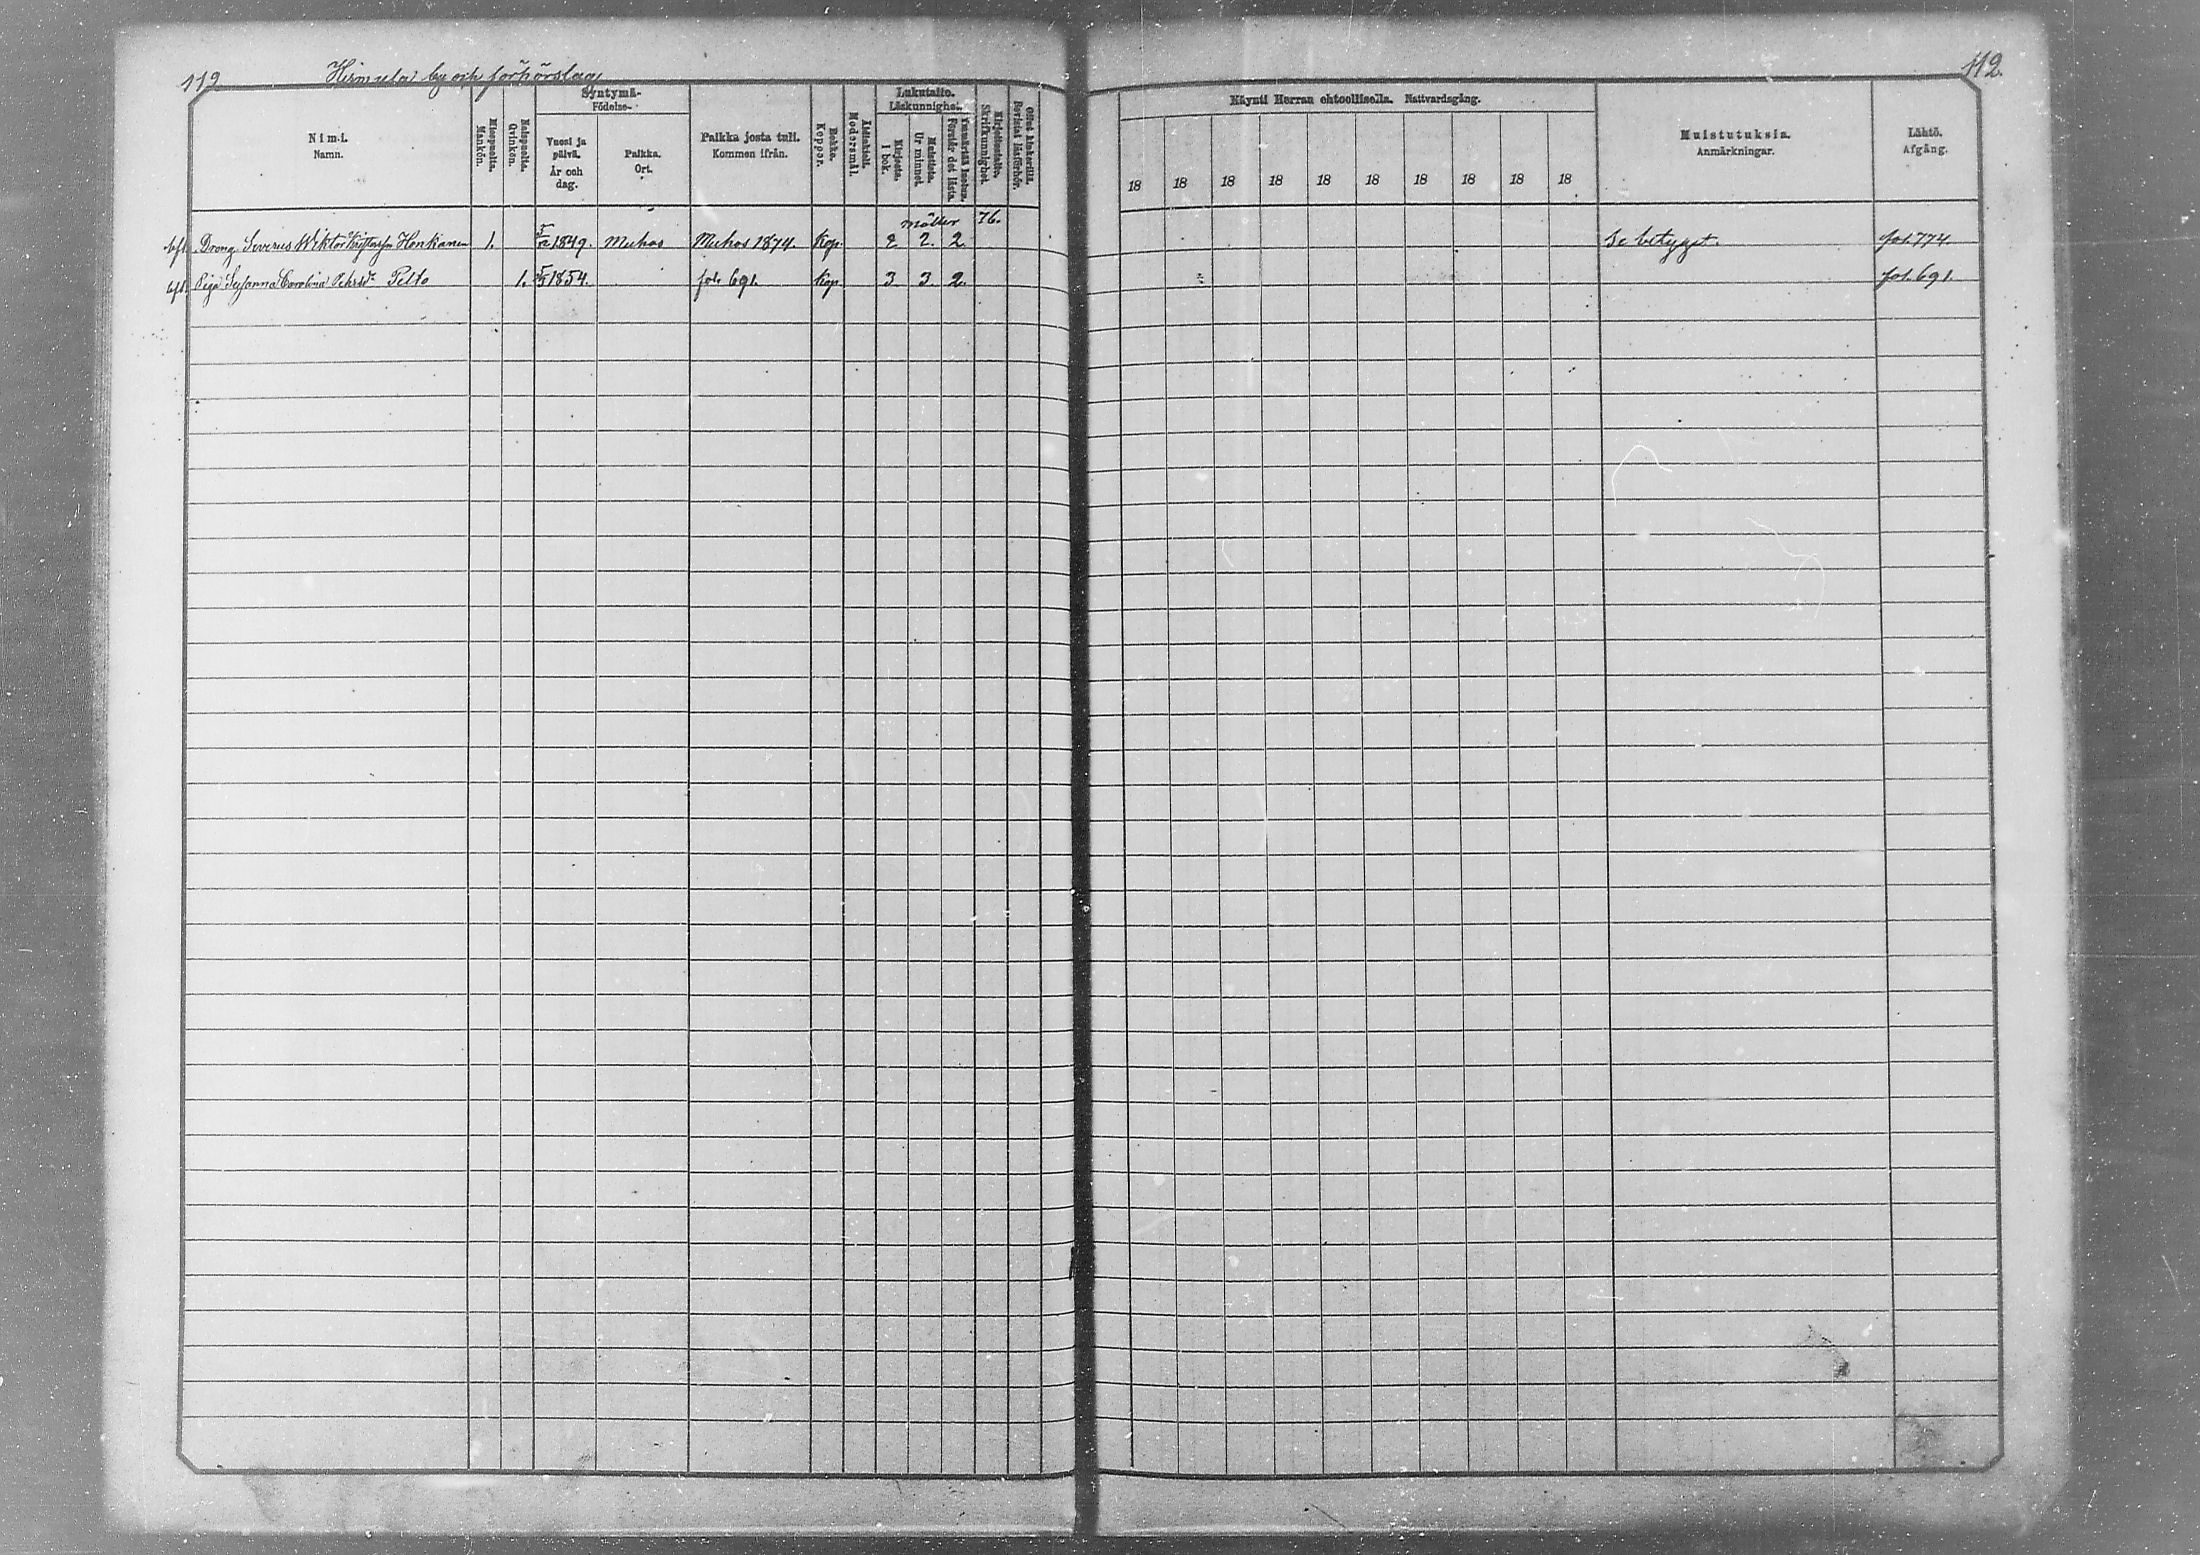 112 Hirmula by och förhörslag 112.
Nimi. Namn.
Miespuolia. Mankön.
Naispuolia. Qvinkön.
Syntymä- Födelse-
Vuosi ja päivä. År och dag.
Paikka. Ort.
Paikka josta tuli. Kommen ifrån.
Rokko. Koppor.
Äidinkieli. Modersmål.
Lukutaito. Läskunnighet.
Kirjasta. I bok.
Muistista. Ur minnet.
Ymmärtää luetun. Förstår det lästa.
Kirjoitustaito. Skrifkunnighet.
Ollut kinkerillä. Bevistat läsförhör.
Käynti Herran ehtoollisella. Nattvardsgång.
18 18 18 18 18 18 18 18 18 18
Muistutuksia. Anmärkningar.
Lähtö. Afgång.
möller 76.
Dreng Severus Wiktor Honkanen 1. 1849. Muhos Muhos 1874. Kop. 2 2. 2 Se betyget. fol. 774.
Piga Susanna Carolina Pehrsdr Pelto 1. 1854. fol. 691. Kop 3 3 2. fol. 691.